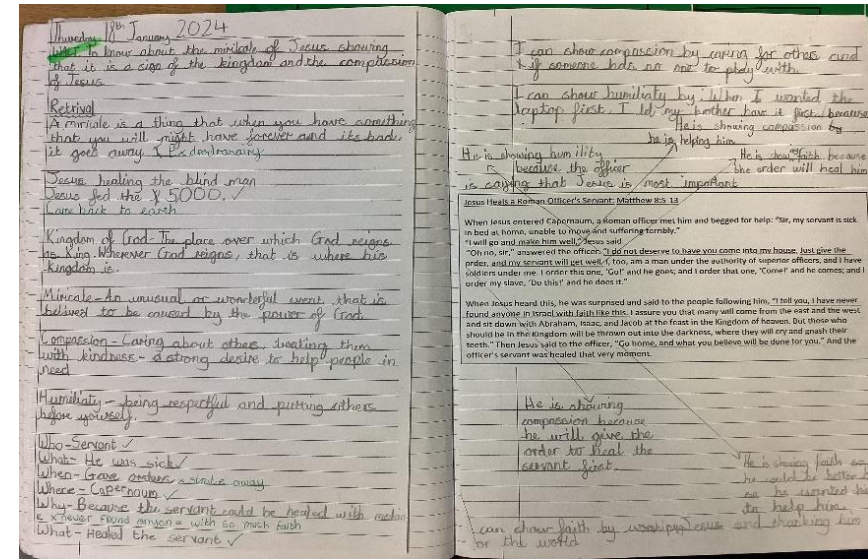 Thursday 18th January 2024
To know about the miricale of Jesus showing
that it is a sign of the kingdom and the compassion
of Jesus
Retrival
A miricale is a thing that when you have somthing
that you will might have forever and its bad
it goes away
Jesus healing the blind man
Jesus fed the 5000. ✓
Came back to earth
Kingdom of God- The place over which God reigns
as King. Wherever God reigns, that is where his
kingdom is.
Miricale- An unusual or wonderful event that is
belived to be caused by the power of God.
Compassion - Caring about others, treating them
with kindness - a strong desire to help people in
need
Humiliaty - being respectful and putting others
before yourself.
Who- Servant ✓
What- He was sick ✓
When- Gave orders straight away
Where- Capernaum ✓
Why- Because the servant could be healed with
x never found anyone with so much faith
What- Healed the servant ✓
I can show compassion by caring for others and
if someone has no one to play with.
I can show humiliaty by: When I wanted the
laptop first. I let my brother have it first because
He is showing compassion by
he is helping him
He is showing humility
because the officer
is saying that Jesus is most important
He is faith because
the order will heal him
Jesus Heals a Roman Officer's Servant: Matthew 8:5-13
When Jesus entered Capernaum, a Roman officer met him and begged for help: "Sir, my servant is sick
in bed at home, unable to move and suffering terribly."
"I will go and make him well," Jesus said.
"Oh no, sir," answered the officer. "I do not deserve to have you come into my house. Just give the
order, and my servant will get well. I, too, am a man under the authority of superior officers, and I have
soldiers under me. I order this one, 'Go!' and he goes; and I order that one, 'Come!' and he comes; and I
order my slave, 'Do this!' and he does it."
When Jesus heard this, he was surprised and said to the people following him, "I tell you, I have never
found anyone in Israel with faith like this. I assure you that many will come from the east and the west
and sit down with Abraham, Isaac, and Jacob at the feast in the Kingdom of heaven. But those who
should be in the Kingdom will be thrown out into the darkness, where they will cry and gnash their
teeth." Then Jesus said to the officer, "Go home, and what you believe will be done for you." And the
officer's servant was healed that very moment.
He is showing
compassion because
he will give the
order to heal the
servant first.
He is showing faith so
he could be better
so he wanted
to help him
I can show faith by worshiping Jesus and thanking him
for the world